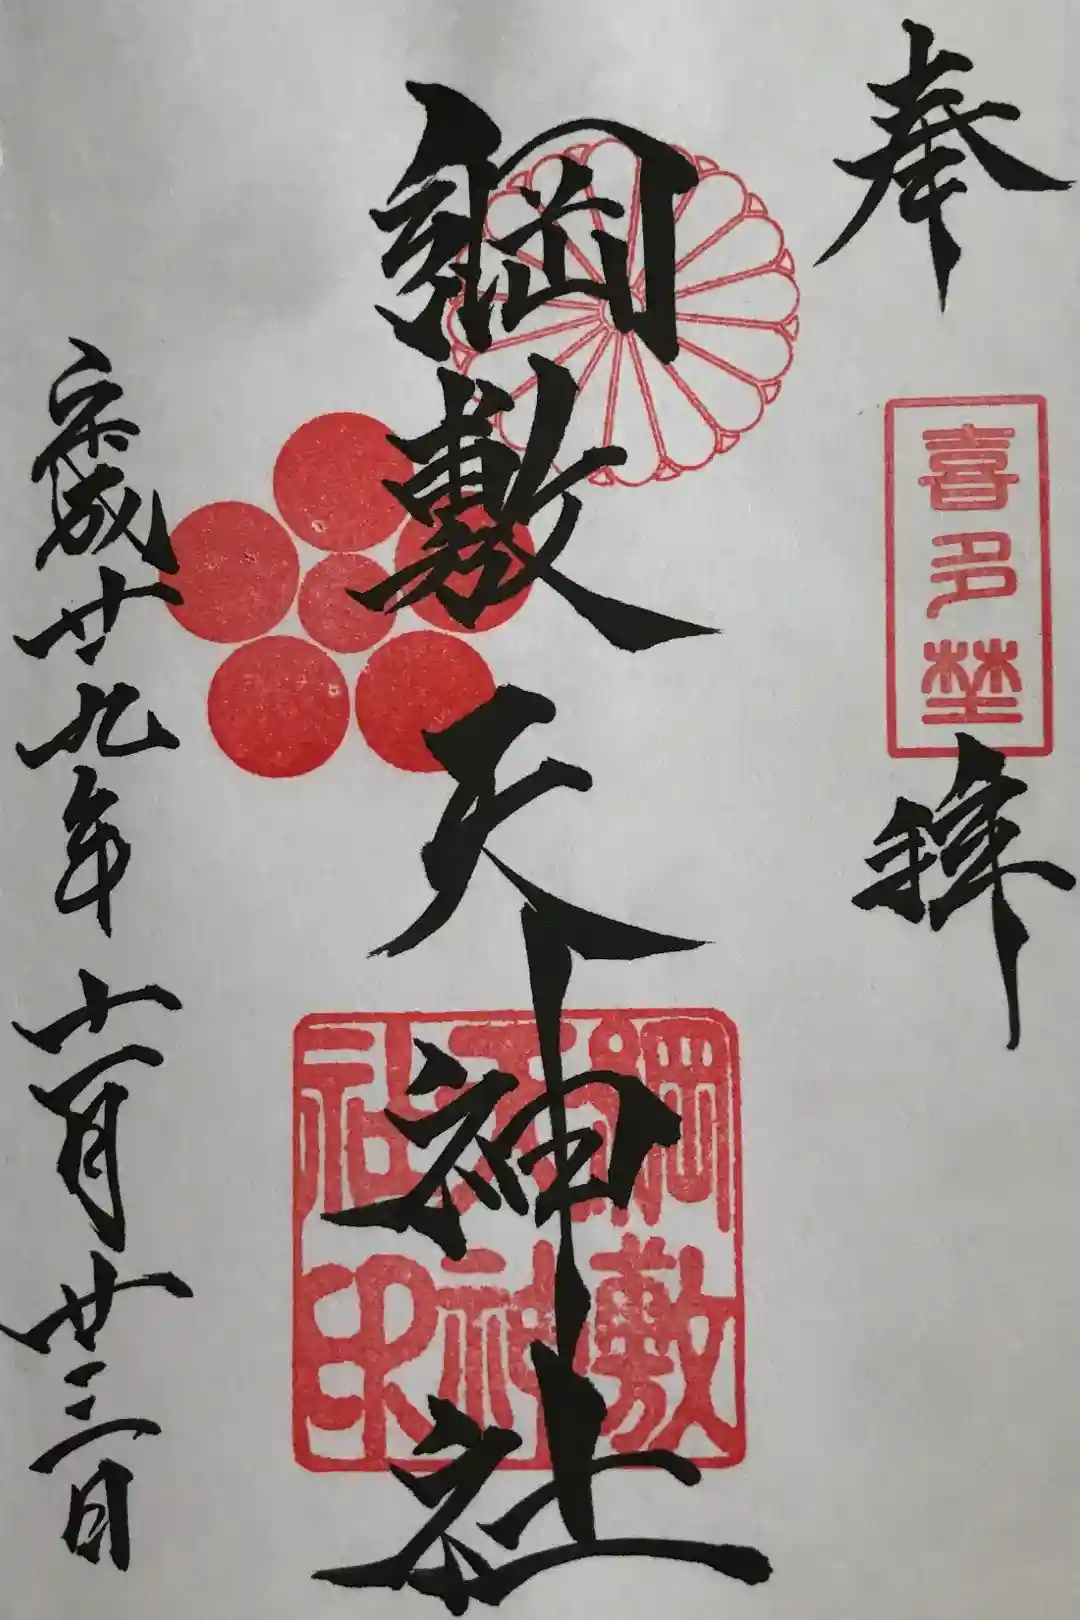 奉
喜多埜
拝
綱敷天神社
綱敷
天神
社印
平成廿九年十一月廿三日